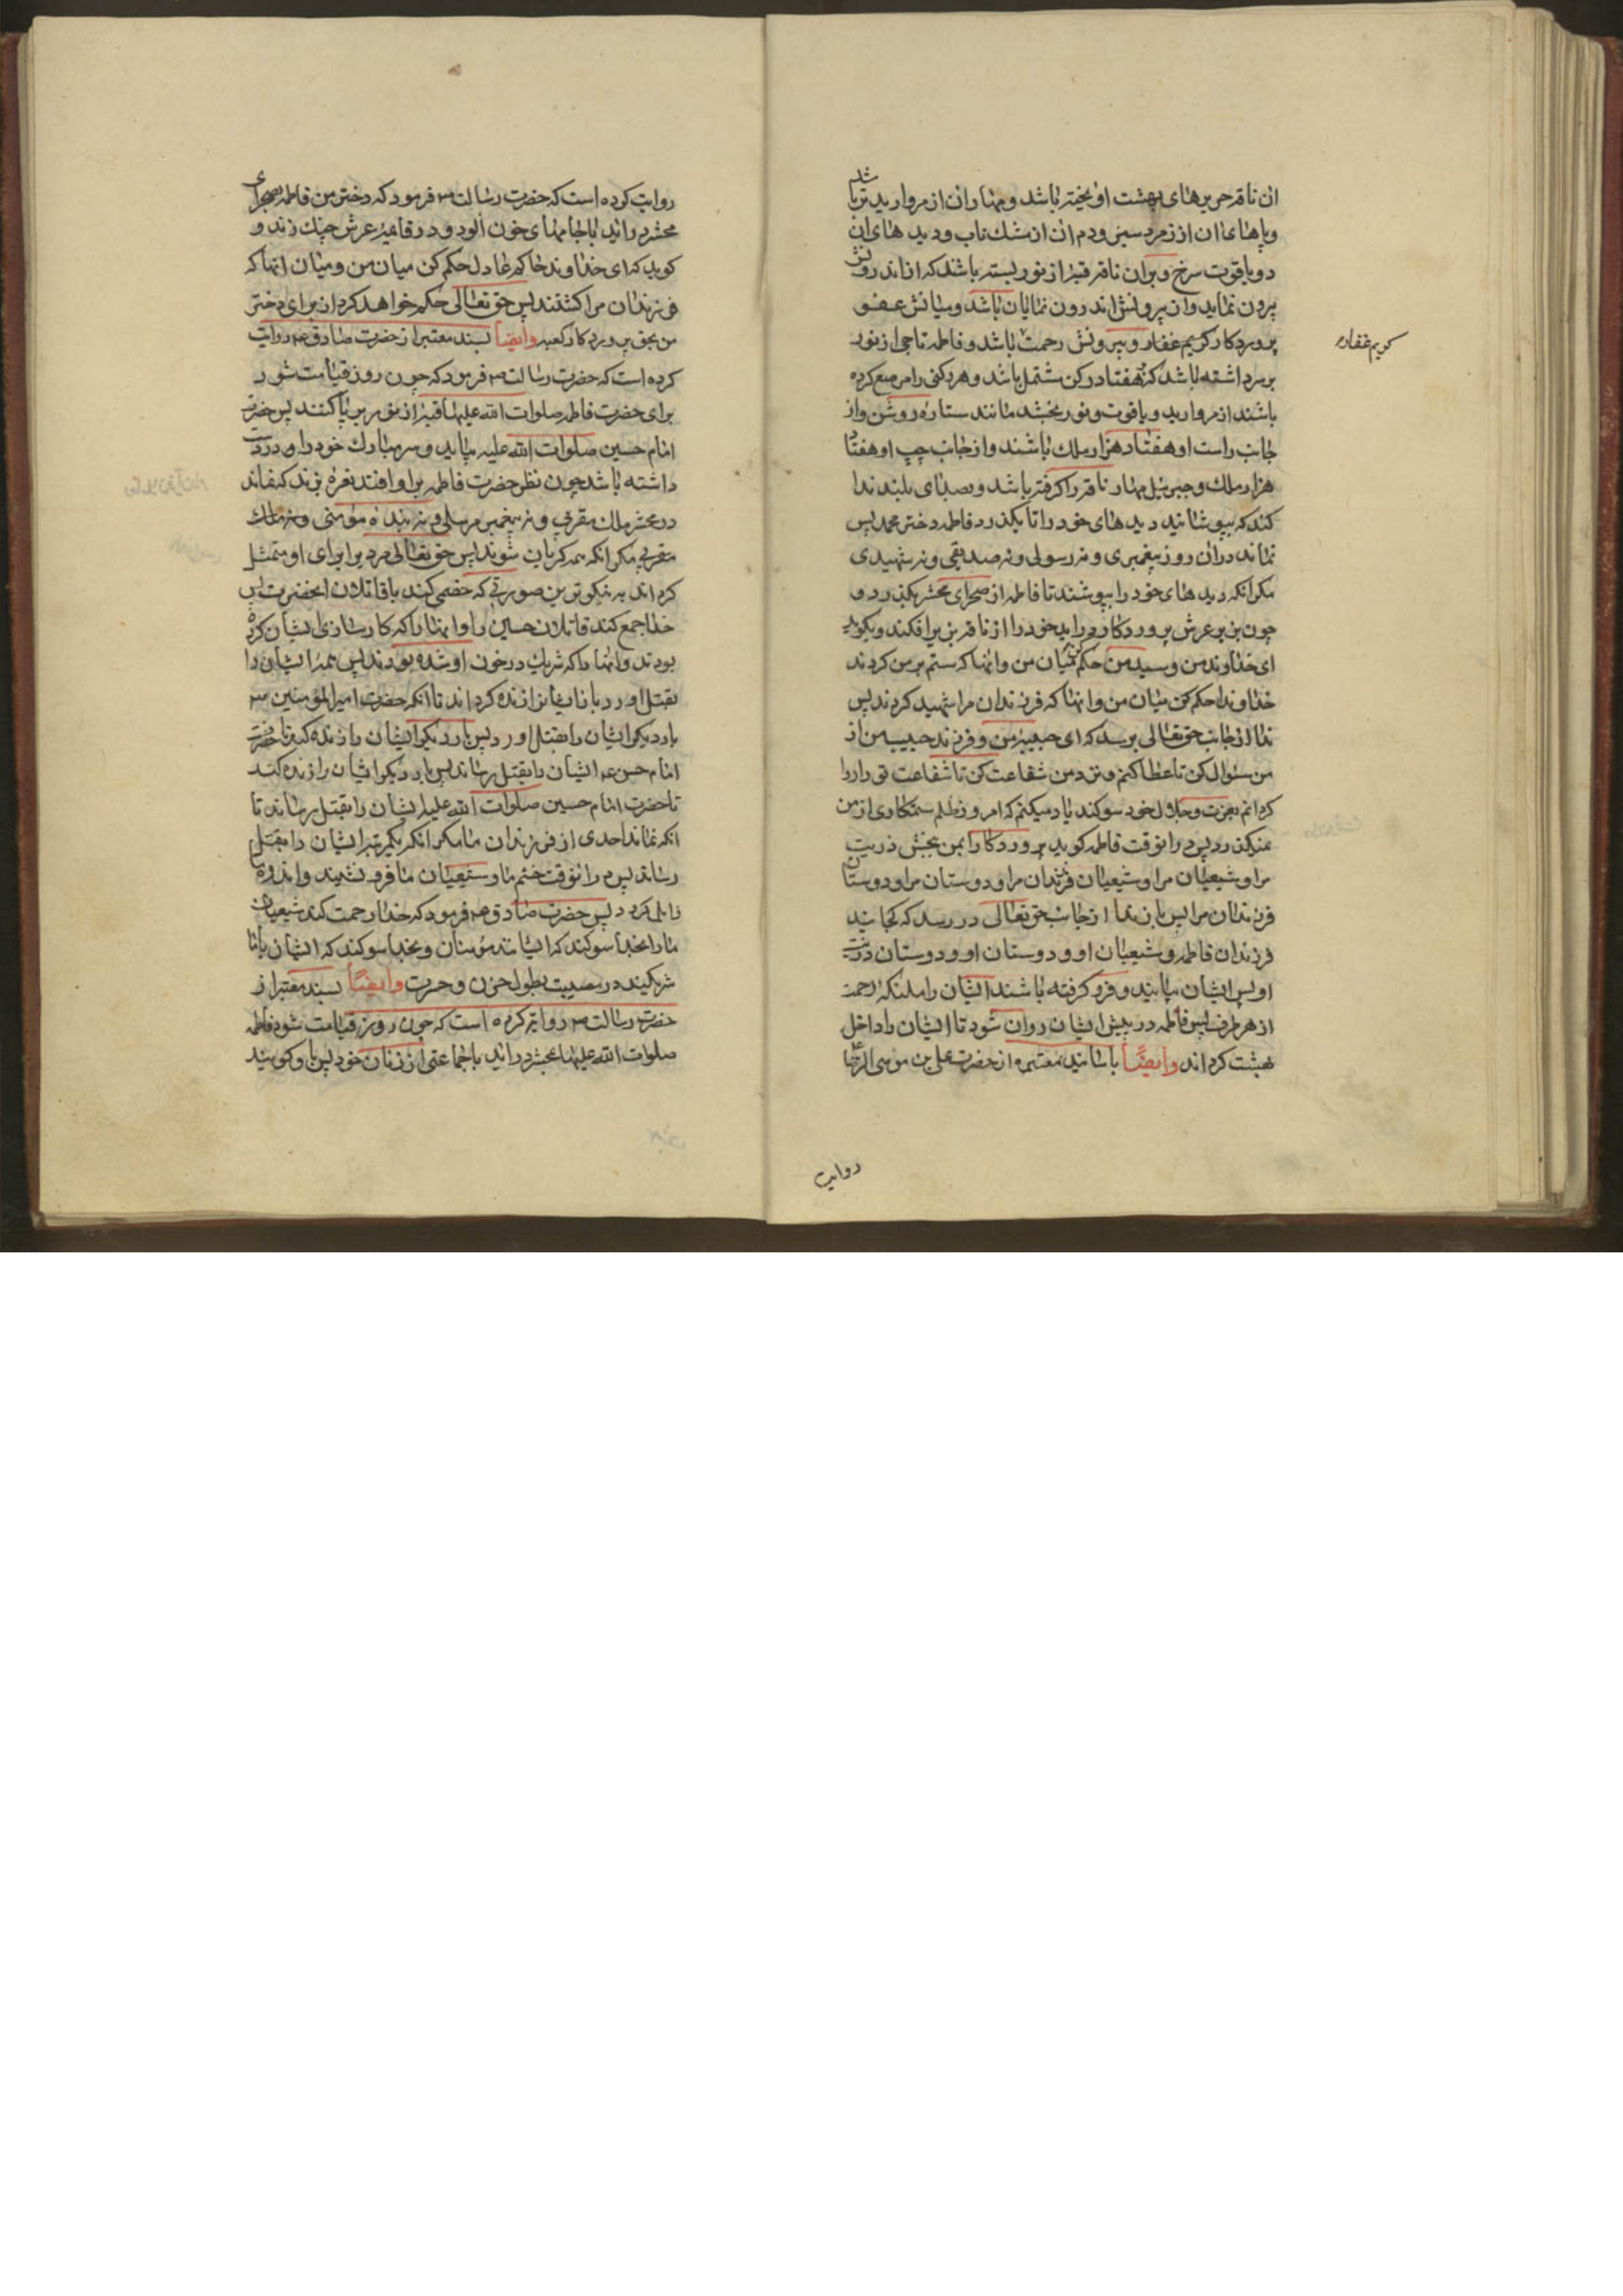 ان ناقه حریرهای بهشت اویخته باشد و مهار ان از مروارید تر باشد
و پاهای ان از زمرد سبز و دم ان از مشک ناب و دیدهای ان
دو یاقوت سرخ و بران ناقه قبهٔ از نور بسته باشد که از اندرونش
بیرون نماید و از بیرونش اندرون نمایان باشد و میانش عفو
پروردکار کریم غفار و بیرونش رحمت باشد و فاطمه تاجی از نور
کریم غفار
بر سر داشته باشد که هفتاد رکن مشتمل باشد و هر رکنی را مرصع کرده
باشند از مروارید و یاقوت و نور بخشد مانند ستاره روشن و از
جانب راست او هفتاد هزار ملک باشند و از جانب چپ او هفتاد
هزار ملک و جبرئیل مهار ناقه را کرفته باشد و بصدای بلند ندا
کند که بپوشانید دیدهای خود را تا بکذرد فاطمه دختر محمد پس
نماند دران روز پیغمبری و نه رسولی و نه صدیقی و نه شهیدی
مکر انکه دیدهای خود را بپوشند تا فاطمه از صحرای محشر بکذرد و
چون بزیر عرش پروردکار دراید خود را از ناقه بزیر افکند و بکوید
ای خداوند من و سید من حکم کن میان من و انها که ستم بر من کردند
خداوندا حکم کن میان من و انها که فرزندان مرا شهید کردند پس
ندا از جانب حق تعالی برسد که ای حبیبهٔ من و فرزند حبیب من از
من سئوال کن تا عطا کنم و نزد من شفاعت کن تا شفاعت تو را روا
کردانم بعزت و جلال خود سوکند یاد میکنم که امروز ظلم ستمکاری از من
نمیکذرد پس درانوقت فاطمه کوید پروردکارا بمن ببخش ذریت
مرا و شیعیان مرا و شیعیان فرزندان مرا و دوستان مرا و دوستان
فرزندان مرا پس باز ندا از جانب حق تعالی در رسد که کجایند
فرزندان فاطمه و شیعیان او و دوستان او و دوستان ذریت
او پس ایشان بیایند و فرو کرفته باشند ایشان را ملئکهٔ رحمت
از هر طرف پس فاطمه در پیش ایشان روان شود تا ایشان را داخل
بهشت کرداند وایضًا باسانید معتبره از حضرت علی بن موسی الرضا ع
روایت
روایت کرده است که حضرت رسالت ص فرمود که دختر من فاطمه بصحرای
محشر دراید با جامهای خون الود و در قایمهٔ عرش چنک زند و
کوید که ای خداوند حاکم عادل حکم کن میان من و میان انها که
فرزندان مرا کشتند پس حق تعالی حکم خواهد کرد از برای دختر
من بحق پروردکار کعبه وایضًا بسند معتبر از حضرت صادق ع روایت
کرده است که حضرت رسالت ص فرمود که چون روز قیامت شود
برای حضرت فاطمه صلوات الله علیها قبهٔ از نور برپا کنند پس حضرت
امام حسین صلوات الله علیه بیاید و سر مبارک خود را در دست
داشته باشد چون نظر حضرت فاطمه بر او افتد نعرهٔ بزند که نماند
در محشر ملک مقربی و نه پیغمبر مرسلی و نه بندهٔ مؤمنی و نه ملک
مقربی مکر انکه همه کریان شوند پس حق تعالی مردی را برای او متمثل
کرداند به نیکوترین صورتی که خصمی کند با قاتلان انحضرت پس
خدا جمع کند قاتلان حسین را و انها را که کارسازی ایشان کرده
بودند و انها را که شریک در خون او شده بودند پس همهٔ ایشان را
بقتل اورد باز ایشانرا زنده کرداند تا انکه حضرت امیرالمؤمنین ع
بار دیکر ایشان را بقتل اورد پس بار دیکر ایشان را زنده کند تا حضرت
امام حسن ع ایشان را بقتل رساند پس بار دیکر ایشان را زنده کند
تا حضرت امام حسین صلوات الله علیه ایشان را بقتل رساند تا
انکه نماند احدی از فرزندان ما مکر انکه یکمرتبه ایشان را بقتل
رساند پس درانوقت خشم ما و شیعیان ما فرو نشیند و اندوه ما
زایل کردد پس حضرت صادق ع فرمود که خدا رحمت کند شیعیان
ما را بخدا سوکند که ایشانند مؤمنان و بخدا سوکند که ایشان با ما
شریکند در مصیبت بطول حزن و حسرت وایضًا بسند معتبر از
حضرت رسالت ص روایت کرده است که چون روز قیامت شود فاطمه
صلوات الله علیها بمحشر دراید با جماعتی از زنان خود پس باو کویند